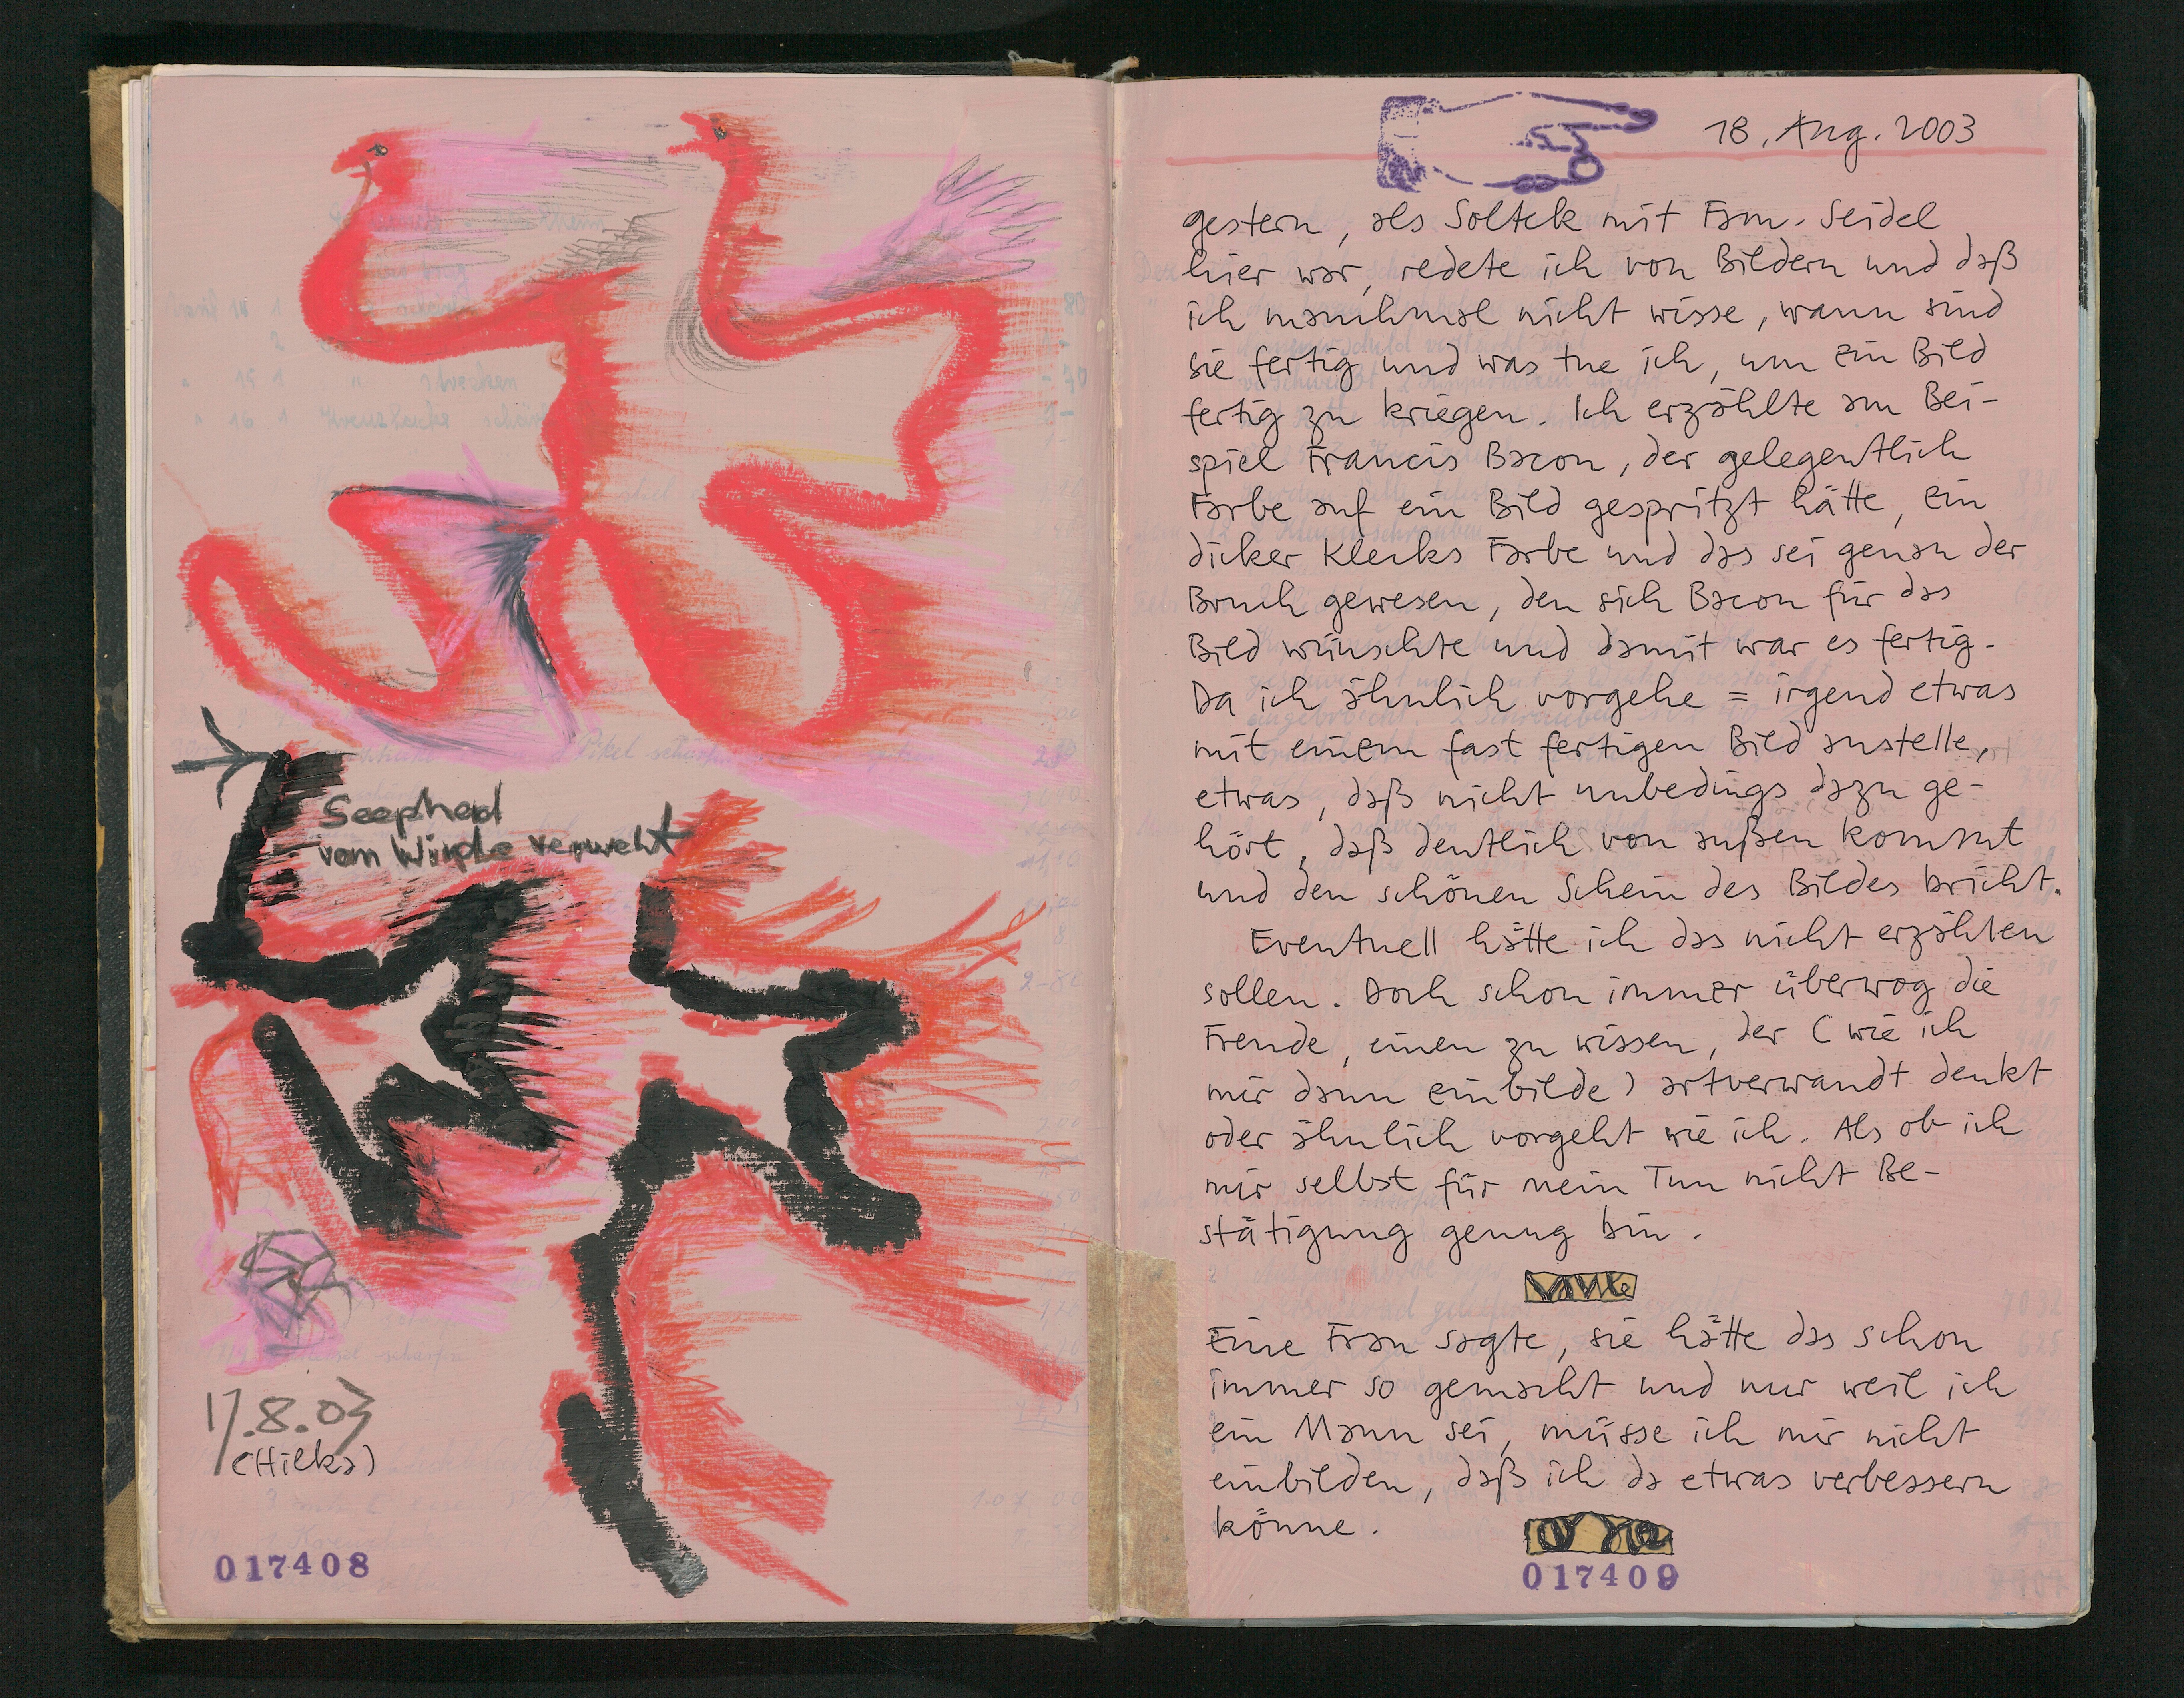 Seepherd
vom Winde verweht
17.8.03
(Hilka)
017408
18. Aug. 2003
gestern, als Soltek mit Fam. Seidel
hier war, redete ich von Bildern und daß
ich manchmal nicht wisse, wann sind
sie fertig und was tue ich, um ein Bild
fertig zu kriegen. Ich erzählte am Bei-
spiel Francis Bacon, der gelegentlich
Farbe auf ein Bild gespritzt hätte, ein
dicker Klecks Farbe und das sei genau der
Bruch gewesen, den sich Bacon für das
Bild wünschte und damit war es fertig.
Da ich ähnlich vorgehe = irgend etwas
mit einem fast fertigen Bild anstelle,
etwas, daß nicht unbedings dazu ge-
hört, daß deutlich von außen kommt
und den schönen Schein des Bildes bricht.
Eventuell hätte ich das nicht erzählen
sollen. Doch schon immer überwog die
Freude, einen zu wissen, der (wie ich
mir dann einbilde) artverwandt denkt
oder ähnlich vorgeht wie ich. Als ob ich
mir selbst für mein Tun nicht Be-
stätigung genug bin.
Eine Frau sagte, sie hätte das schon
immer so gemacht und nur weil ich
ein Mann sei, müsse ich mir nicht
einbilden, daß ich da etwas verbessern
könne.
017409